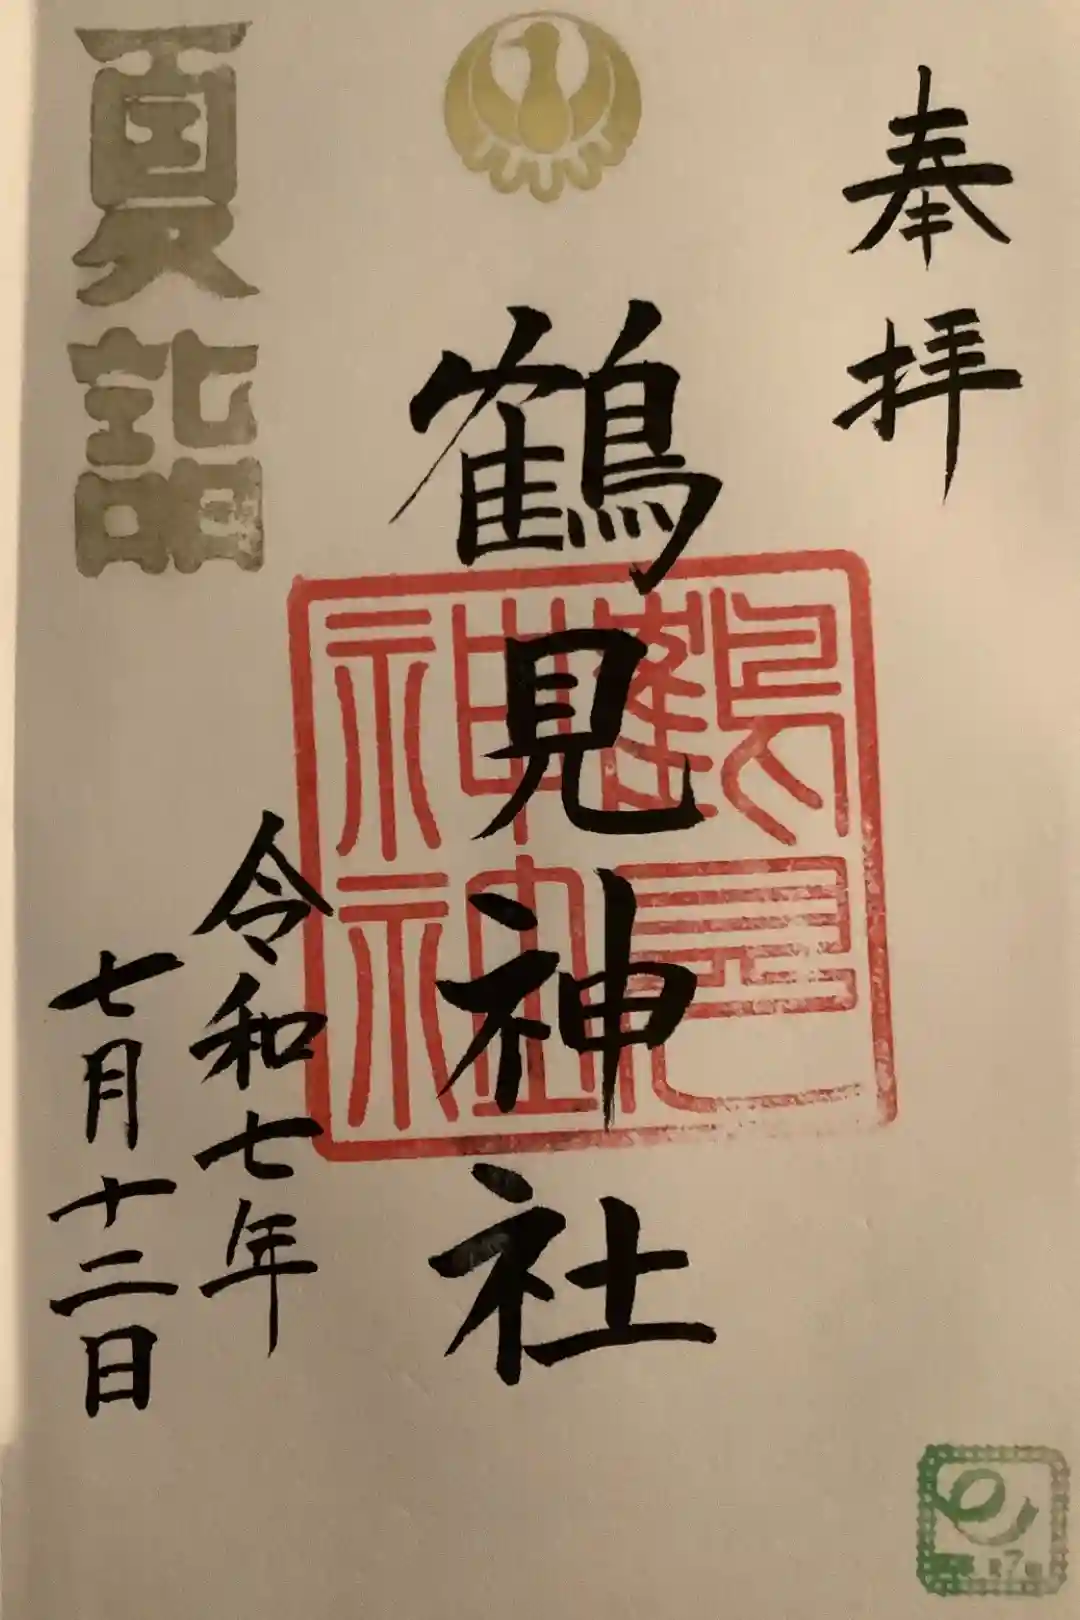 奉拝
鶴見神社
鶴見
神社
令和七年
七月十二日
夏詣
7